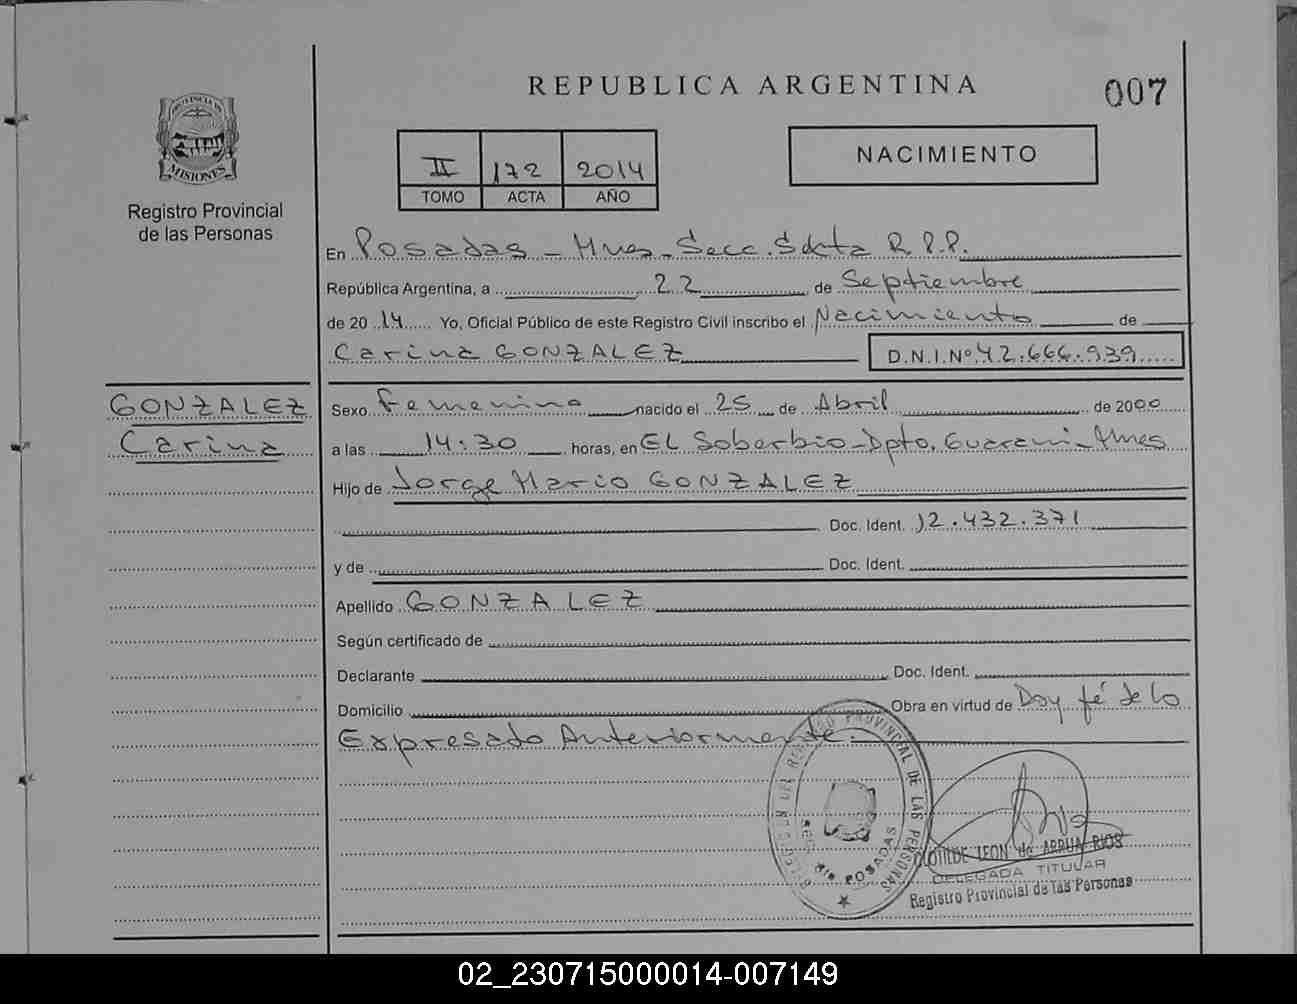 REPUBLICA ARGENTINA
007
PROVINCIA DE
MISIONES
Registro Provincial
de las Personas
II 172 2014
TOMO ACTA AÑO
NACIMIENTO
En Posadas - Mnes. Secc. Sexta R.P.P.
República Argentina, a 22 de Septiembre
de 2014 Yo, Oficial Público de este Registro Civil inscribo el Nacimiento de
Carina GONZALEZ D.N.I.Nº 42.666.939
GONZALEZ
Carina
Sexo Femenino nacido el 25 de Abril de 2000
a las 14:30 horas, en EL Soberbio - Dpto. Guarani - Mnes
Hijo de Jorge Mario GONZALEZ
Doc. Ident. 12.432.371
y de Doc. Ident.
Apellido GONZALEZ
Según certificado de
Declarante Doc. Ident.
Domicilio Obra en virtud de Doy fé de lo
Expresado Anteriormente.
DELEGACION DEL REGISTRO PROVINCIAL DE LAS PERSONAS
SEC. 6ta. POSADAS
CLOTILDE LEON de ARRUA RIOS
DELEGADA TITULAR
Registro Provincial de las Personas
02_230715000014-007149